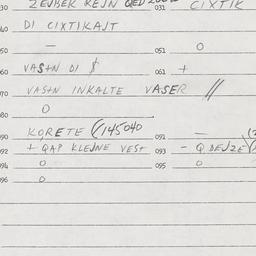 030 ZEJBEK KEJN 031 CIXTIK
040 DI CIXTIKAJT
050 — 051 O
060 VASTN DI $ 061 +
070 VASTN INKALTE VASER //
080 O
090 KORETE (145040 091 —
092 + QAP KLEJNE VEST 093 - Q DEJZE
094 O 095 O
096 O